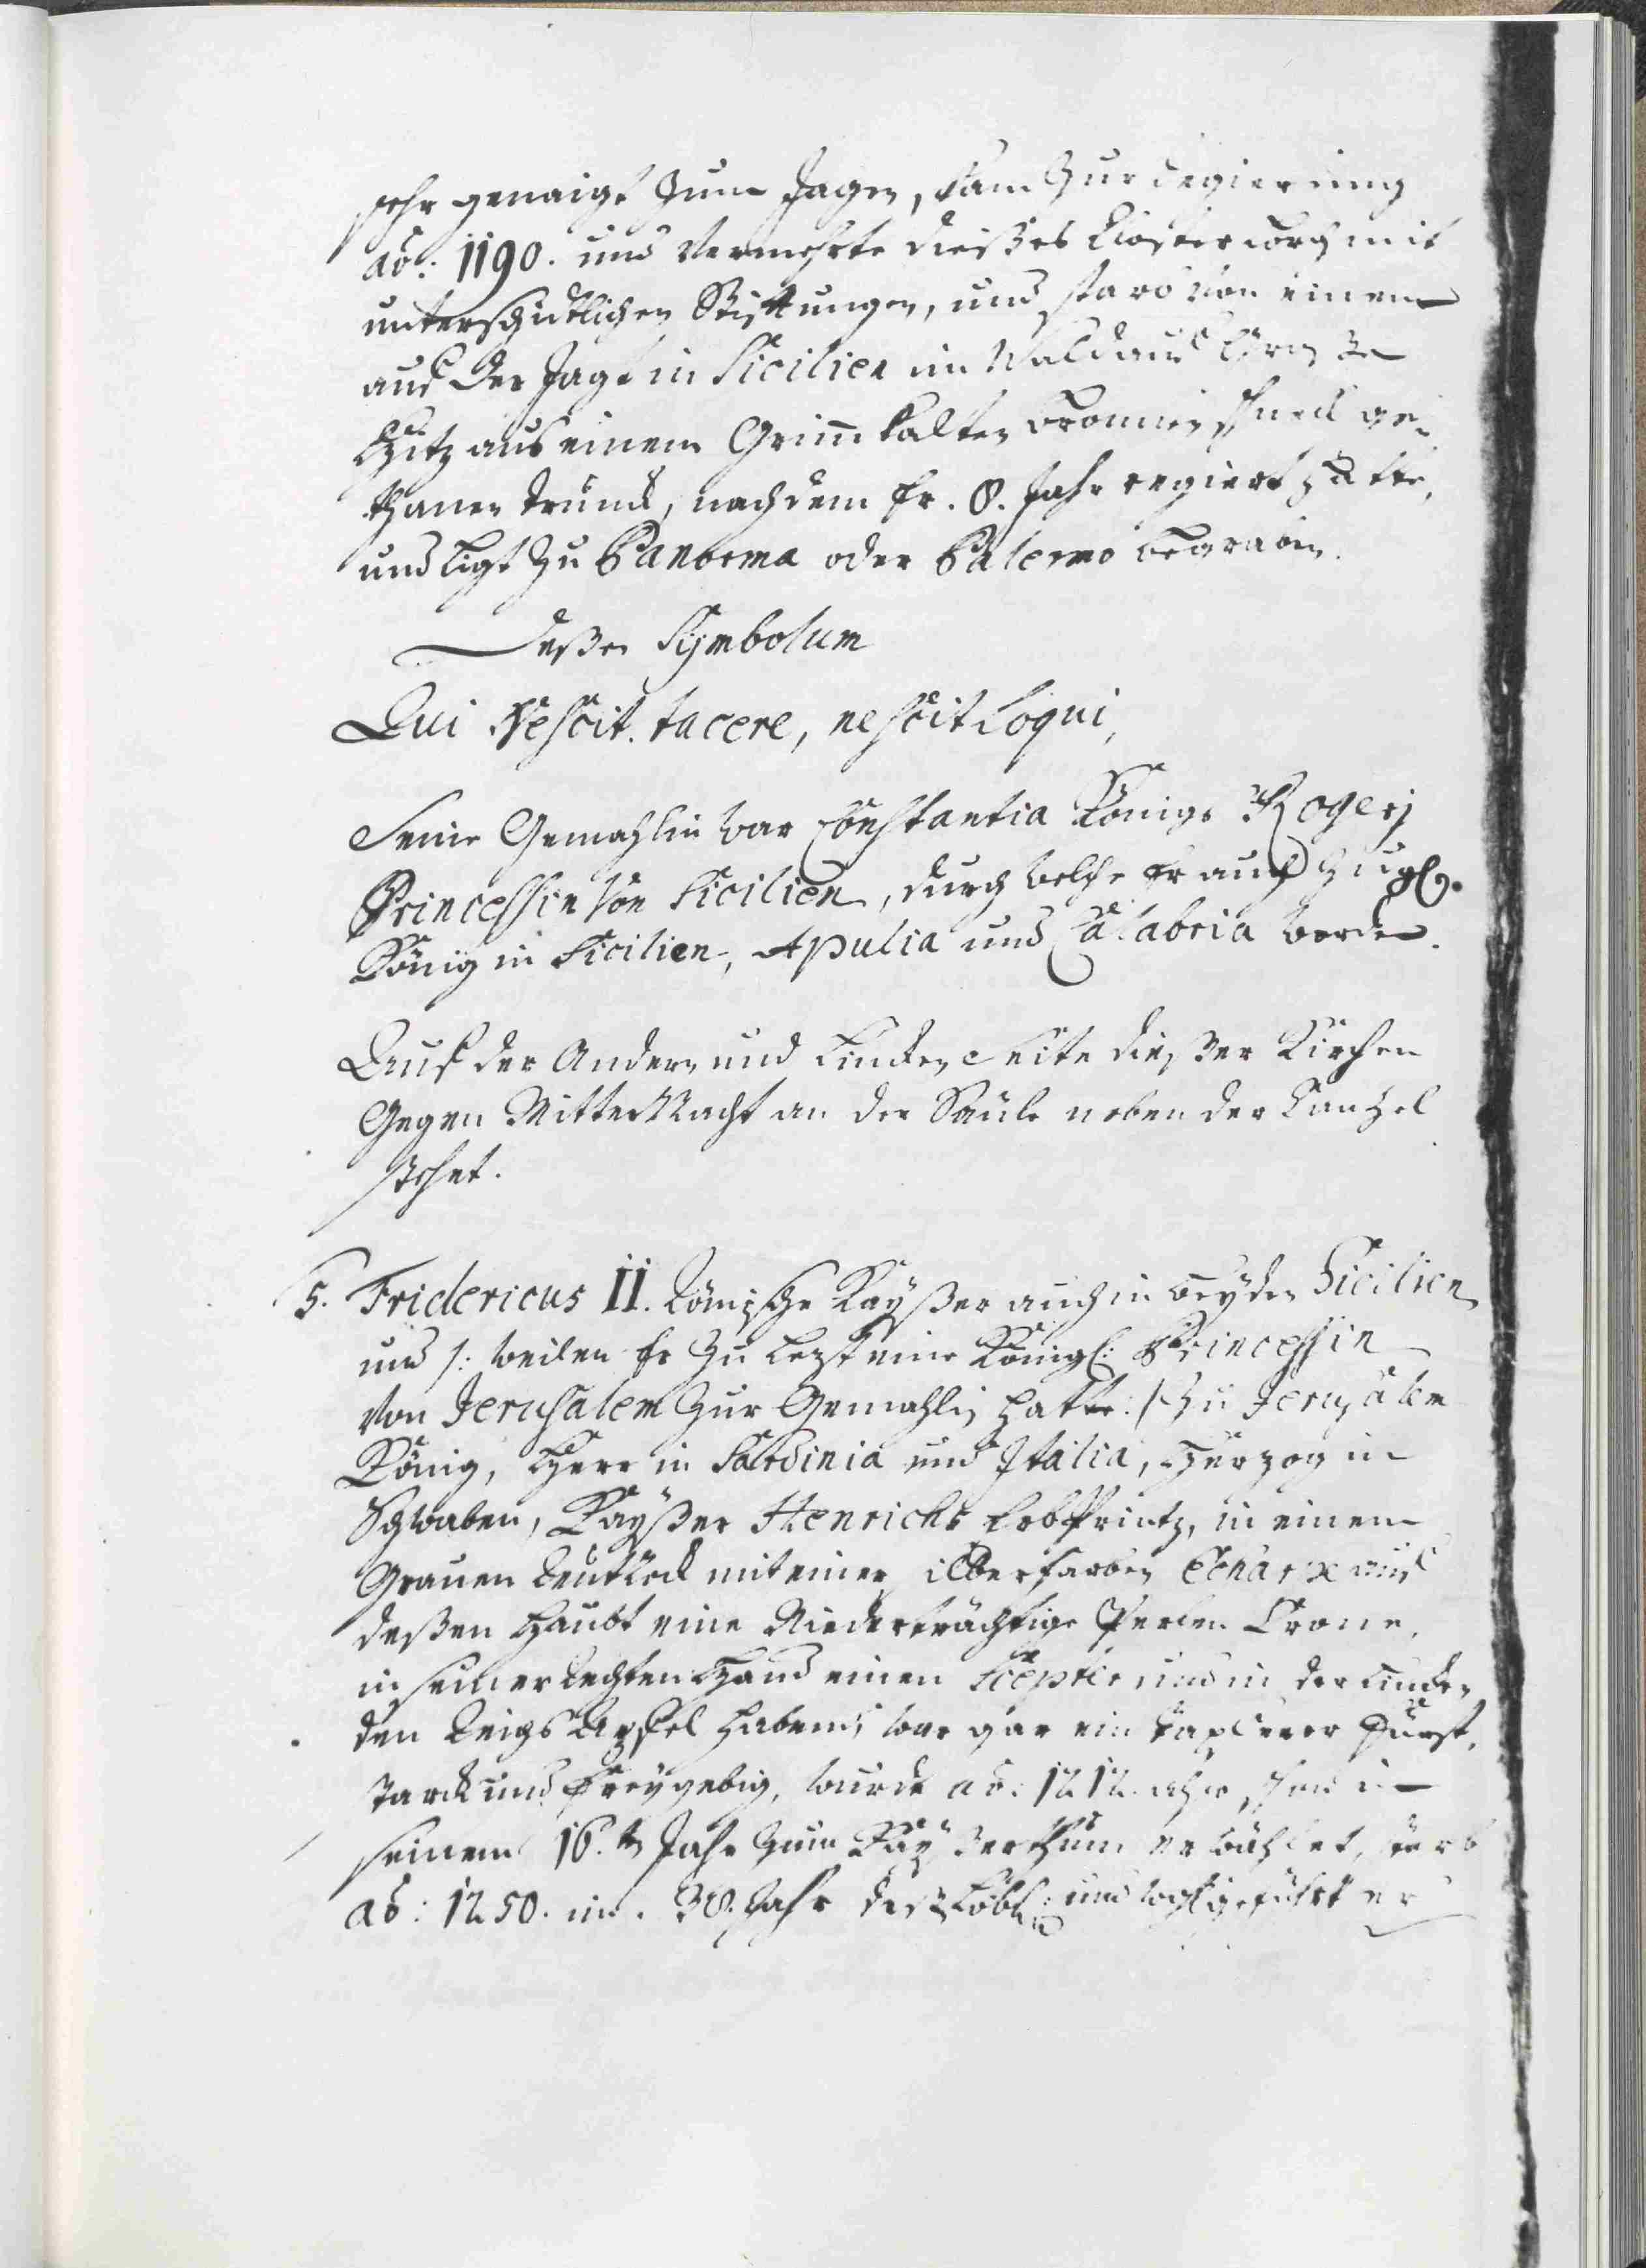 sehr genaigt zum Jagen, kam zur Regierung
aō: 1190. und Vermehrte dießes Closter Lorch mit
unterschidtlichen Stifftungen, und starb von einem
auf der Jagt in Sicilien im Wald aus großer
Hitz aus einem Grimm kalten Bronnen schnell ge-
thanen Trunck, nachdem Er. 8. Jahr regiert hatte,
und ligt zu Panorma oder Palermo begraben.
Deßen Symbolum
Qui Nescit tacere, nescit Loqui,
Seine Gemahlin war Constantia Königs Rogerj
Princessin von Sicilien, durch welche Er auch zugl.
König in Sicilien, Apulia und Calabria worden.
Auf der Andern und Lincken Seite dießer Kirchen
Gegen MitterNacht an der Säule neben der Canzel
stehet.
5. Fridericus II. Römische Kayßer auch in beyden Sicilien
und /: weilen Er zu Lezst eine Königl: Princessin
von Jerusalem zur Gemahlin hatte :/ zu Jerusalem
König, Herr in Sardinia und Italia, Herzog in
Schwaben, Kayßer Henrichs ErbPrintz, in einem
Grauen Leibrock mit einer silberfarben Echarpe auf
deßen Haubt eine Niederträchtige Perlen Crone,
in seiner Rechten Hand einen Scepter und in der Lincken
den Reichs Apffel habend, war gar ein Tapferer Fürst,
starck und Freygebig, wurde aō: 1212. in
seinem 16.ten Jahr zum Kayßerthum erwählet, starb
aō: 1250. im. 38. Jahr deß Löbl: und wohlgeführter